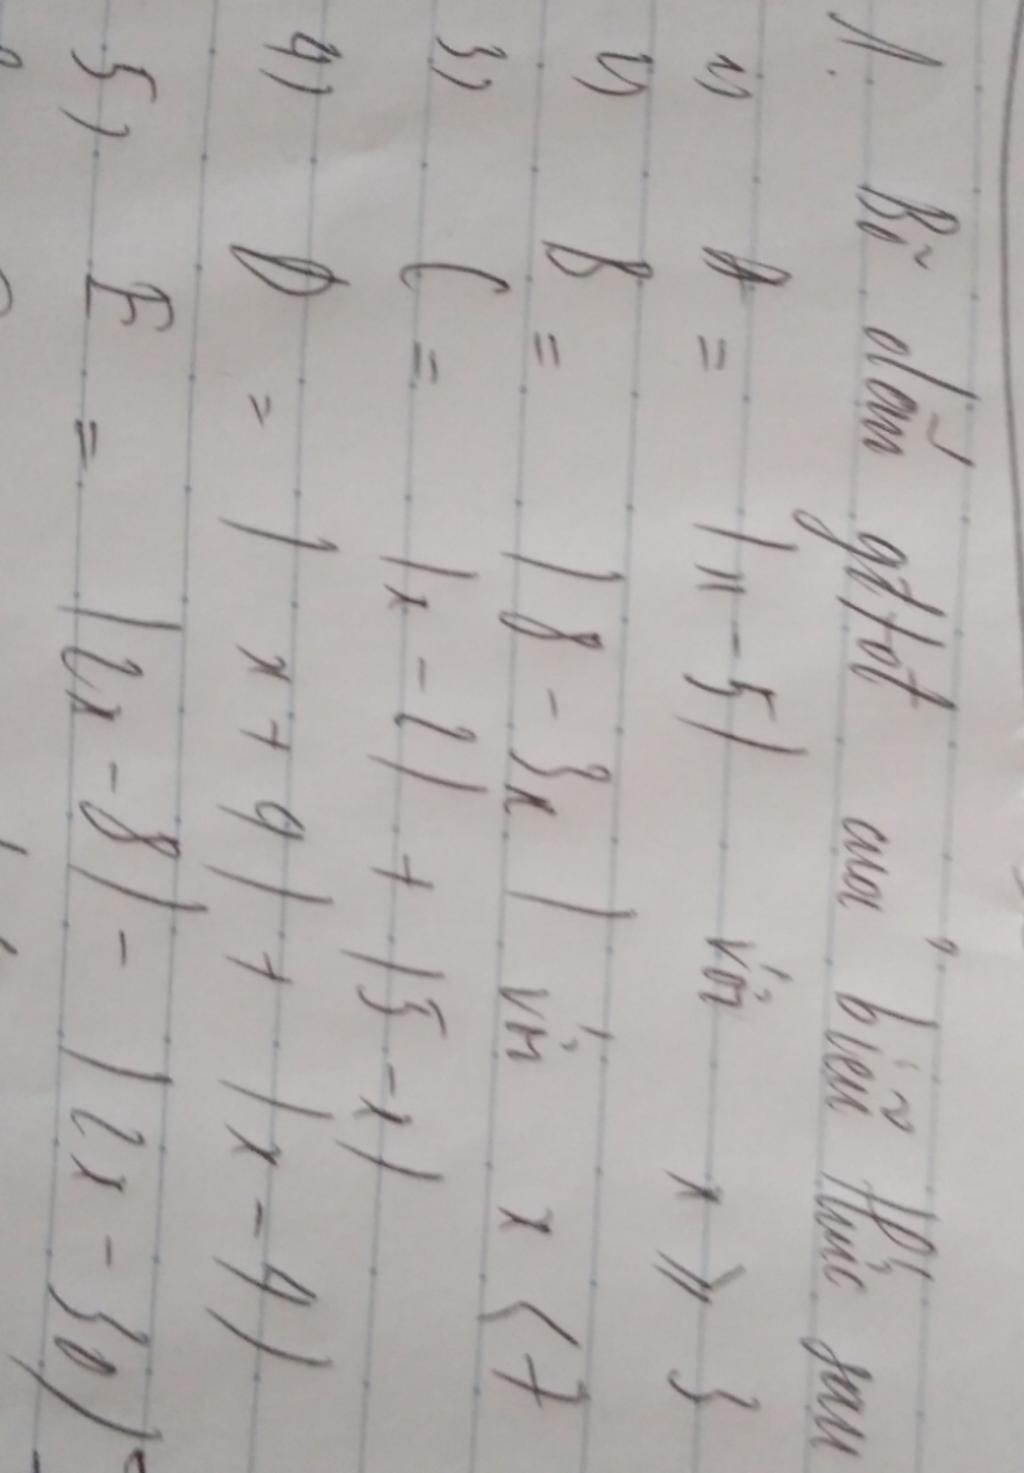 1. Bỏ dấu gttđ của biểu thức sau
1) A = |x - 5| với x ≥ 3
2) B = |8 - 3x| với x < 7
3) C = |x - 2| + |5 - x|
4) D = |x + 9| + |x - 4|
5) E = |2x - 8| - |2x - 30|